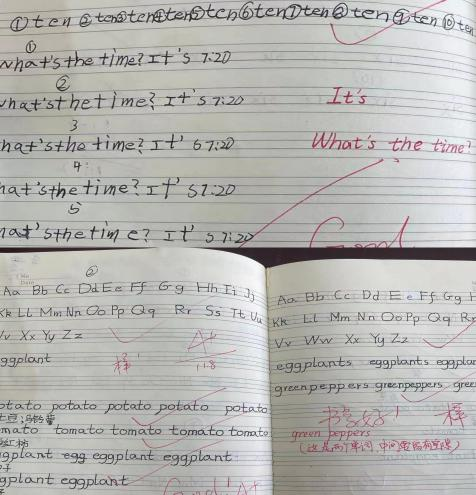 ①ten ②ten③ten④ten⑤ten⑥ten⑦ten⑧ten⑨ten⑩ten
①
what's the time? It's 7:20
②
what'sthe time? It's 7:20 It's
3
hat'sthe time? It's 7:20 What's the time?
4
hat'sthe time? It's 7:20
5
hat'sthe time? It's 7:20
Good
②
Aa Bb Cc Dd Ee Ff Gg Hh Ii Jj
Kk Ll Mm Nn Oo Pp Qq Rr Ss Tt Uu
Vv Xx Yy Zz
eggplant 棒! A+
11.8
potato potato potato potato potato
tomato tomato tomato tomato tomato
eggplant egg eggplant eggplant
eggplant eggplant
Good! A+
Aa Bb Cc Dd Ee Ff Gg
Kk Ll Mm Nn Oo Pp Qq R
Vv Ww Xx Yy Zz
eggplants eggplants eggplan
greenpeppers greenpeppers gree
书写好! 棒
green peppers